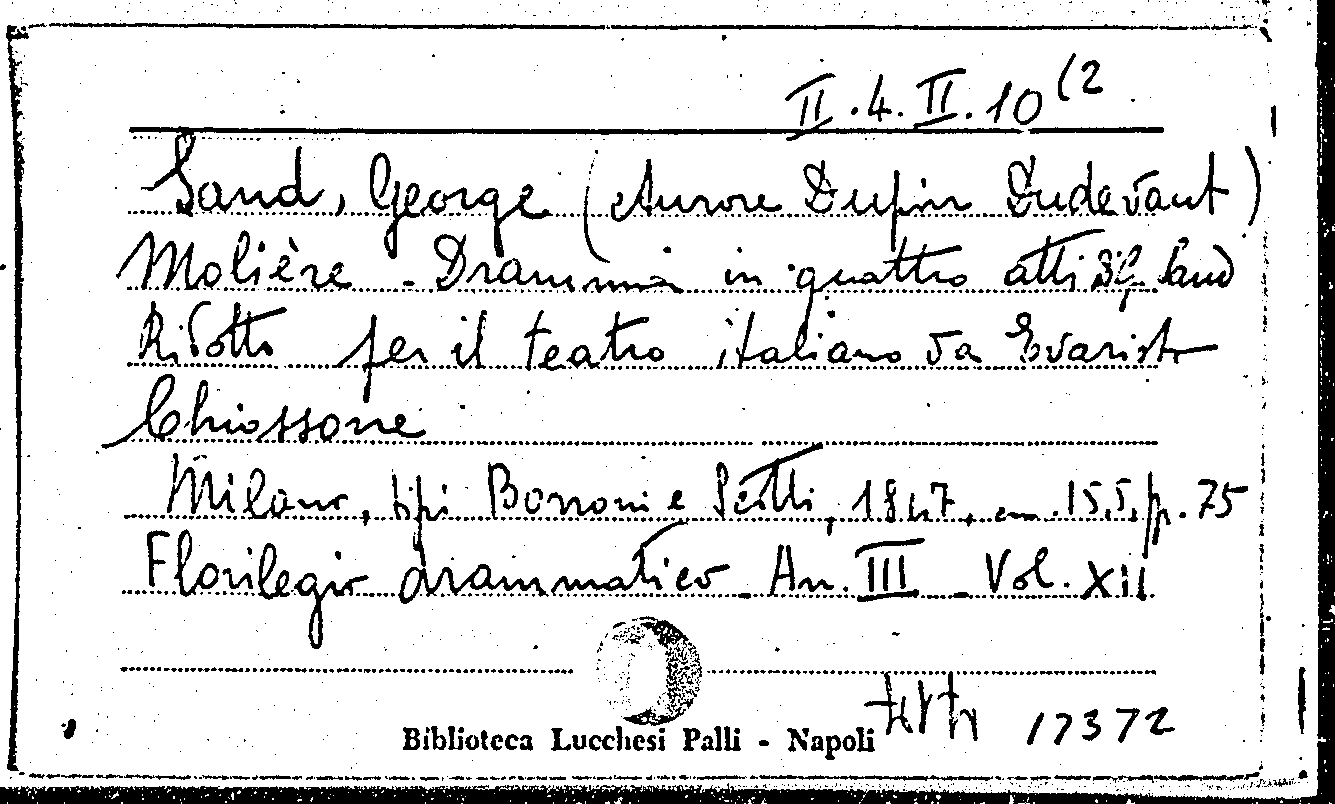 II.4.II.10(2
Sand, George (Aurore Dupin Dudevant)
Molière - Dramma in quattro atti di G. Sand
Ridotto per il teatro italiano da Evaristo
Chiossone
Milano, tipi Borroni e Scotti, 1847, cm. 15,5, p. 75
Florilegio drammatico - An. III - Vol. XII
17372
Biblioteca Lucchesi Palli - Napoli